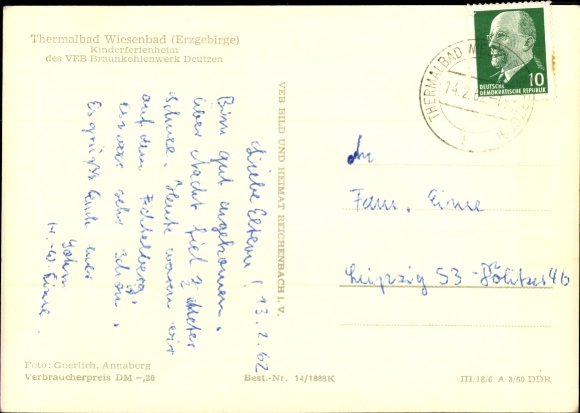 Thermalbad Wiesenbad (Erzgebirge)
Kinderferienheim
des VEB Braunkohlenwerk Deutzen
Liebe Eltern! 13.2.62
Bin gut angekommen.
Über Nacht fiel 2 Meter
Schnee. Heute waren wir
auf dem Fichtelberg,
es war sehr schön.
Es grüßt Euch Euer
Sohn
VEB BILD UND HEIMAT REICHENBACH i. V.
THERMALBAD
14.2.62
10
DEUTSCHE
DEMOKRATISCHE REPUBLIK
An
Fam.
Leipzig S3
Foto: Goerlich, Annaberg
Verbraucherpreis DM -,20
Best.-Nr. 14/1898K
III/18/6 A 3/60 DDR